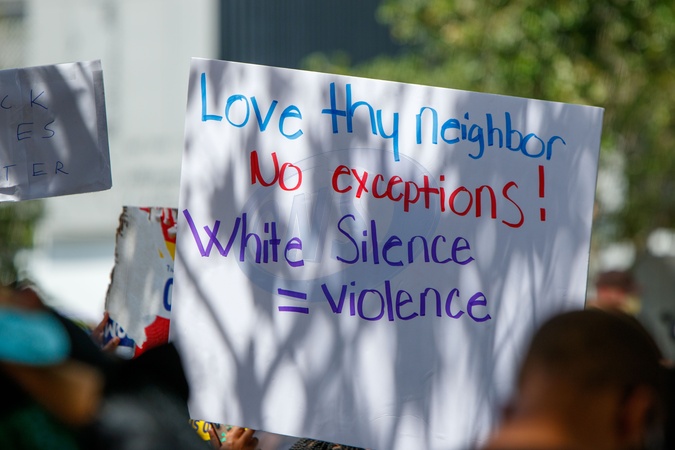 CK
ES
TER
Love thy neighbor
No exceptions!
White Silence
= violence